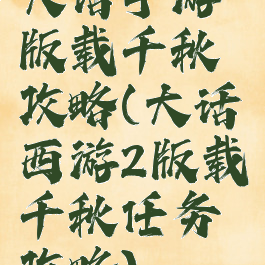 大话手游
版载千秋
攻略(大话
西游2版载
千秋任务
攻略)